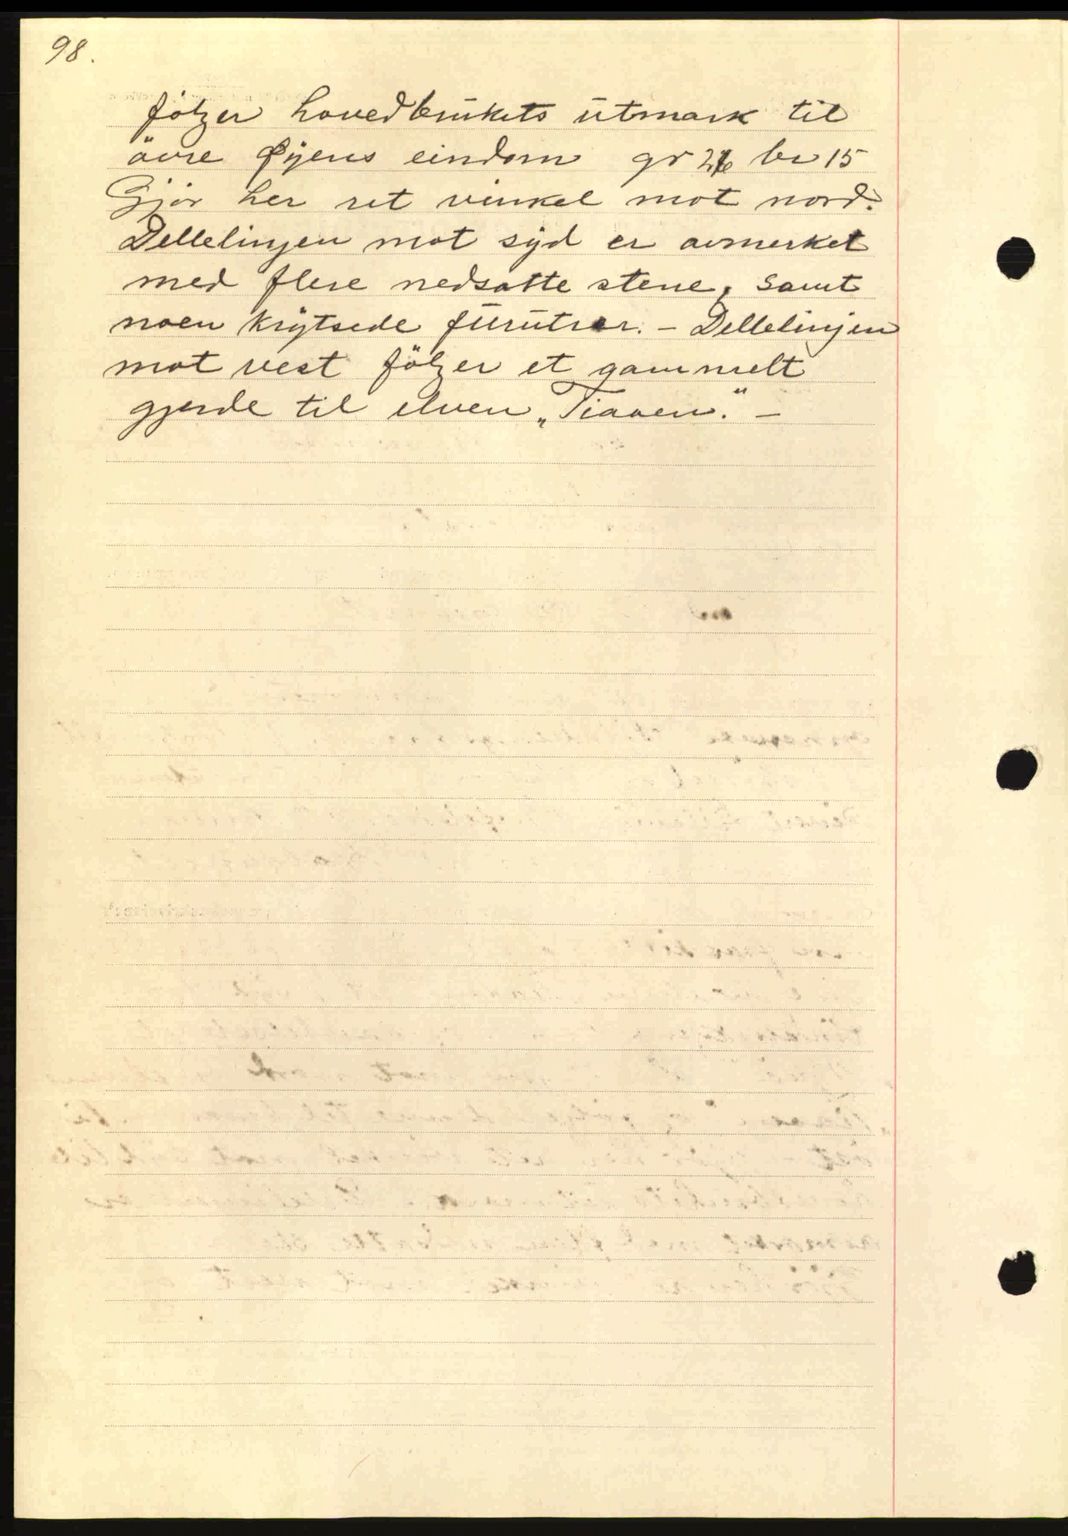 98.
følger hovedbrukets utmark til
øvre Øyens eindom gr br 15
Gjör her ret vinkel mot nord.
Dellelinjen mot syd er avmerket
med flere nedsatte stene, samt
noen krytsede furutrær. – Dellelinjen
mot vest følger et gammelt
gjerde til elven „Tiaaen." –